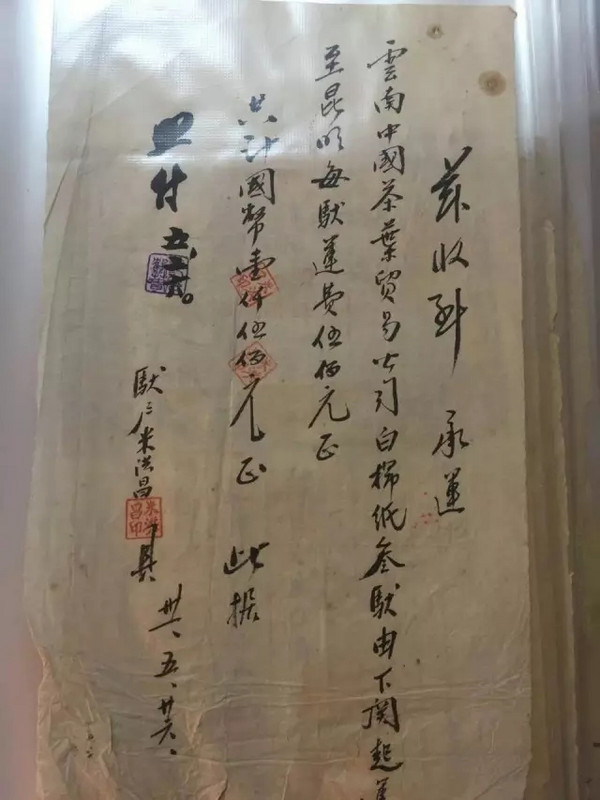 茲收到 承運
雲南中國茶葉貿易公司白棉紙叁馱由下関起運
至昆明每馱運費伍佰元正
共計國幣壹仟伍佰元正 此據
照付
馱戶米洪昌具
米洪昌印
卅一、五、廿六、